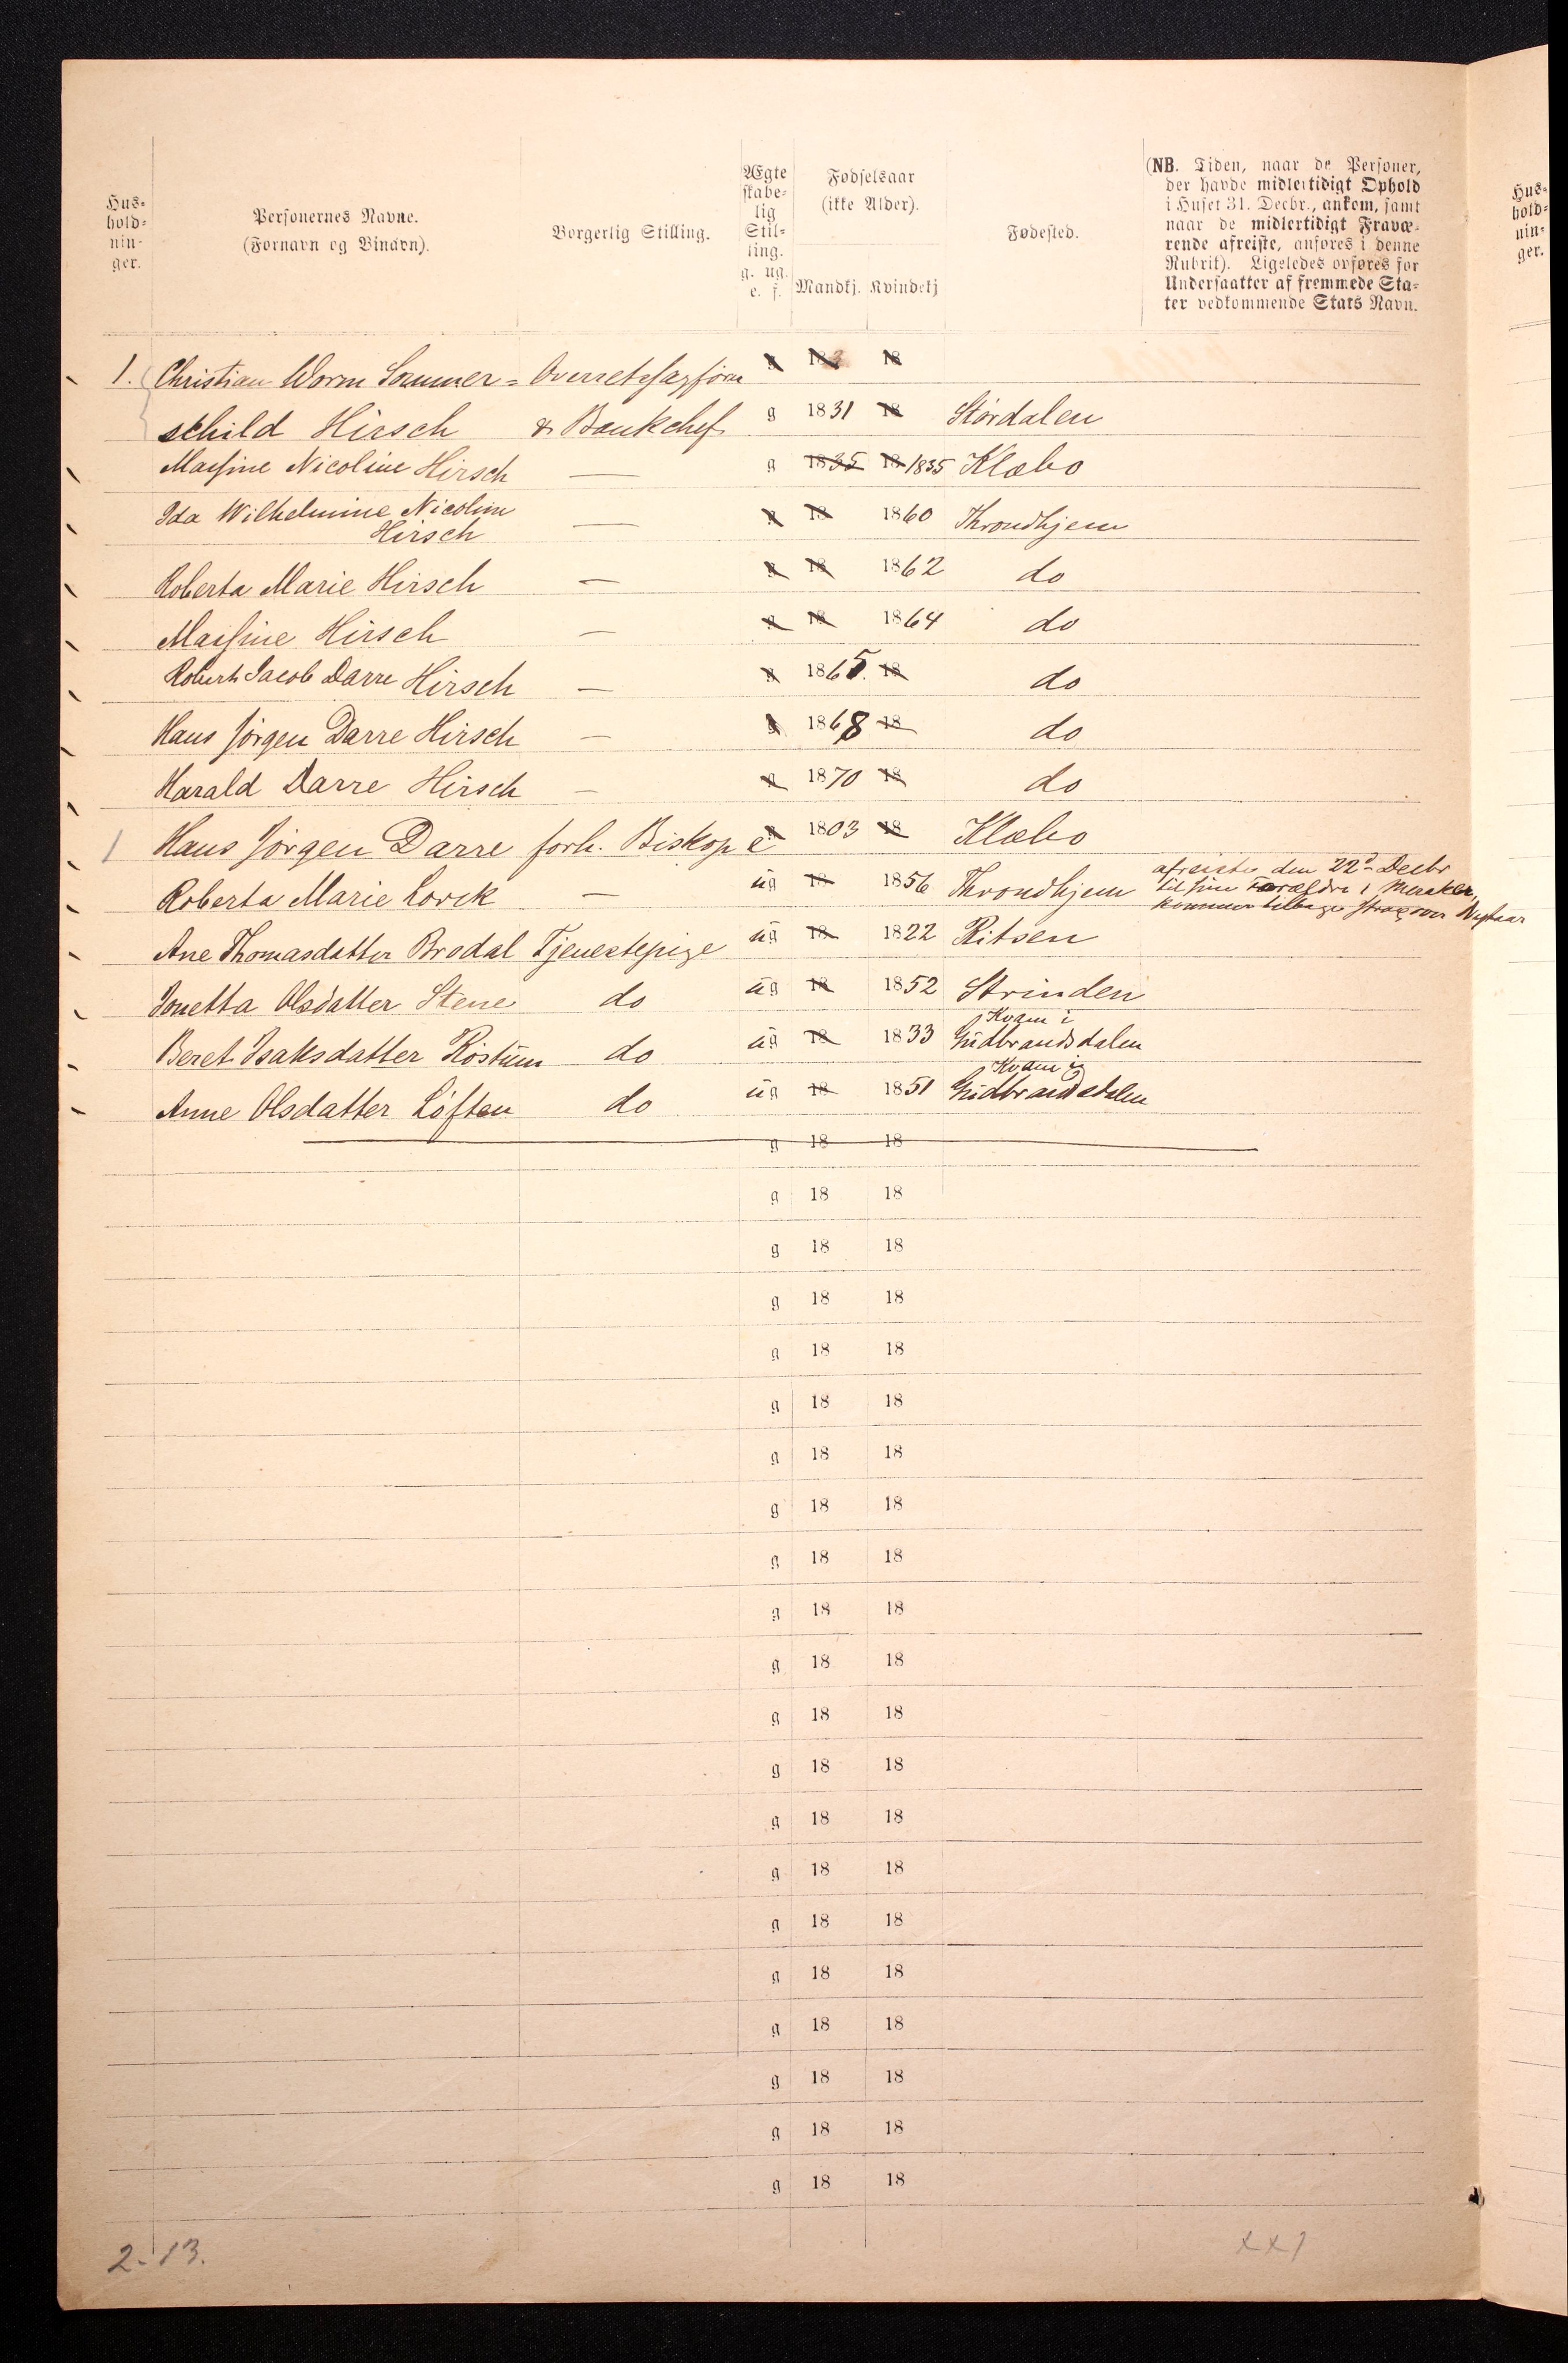 Hus-
hold-
nin-
ger.
Personernes Navne.
(Fornavn og Binavn).
Borgerlig Stilling.
Ægte
skabe-
lig
Stil-
ling.
g. ug.
e. f.
Fødselsaar
(ikke Alder).
Mandkj. Kvindekj
Fødested.
(NB. Tiden, naar de Personer,
der havde midlertidigt Ophold
i Huset 31. Decbr., ankom, samt
naar de midlertidigt Fravæ-
rende afreiste, anføres i denne
Rubrik). Ligeledes opføres for
Undersaatter af fremmede Sta-
ter vedkommende Stats Navn.
1. Christian Worm Sommer= Overretssagfører g 18 18
schild Hirsch & Bankchef g 1831 18 Stördalen
Massine Nicoline Hirsch — g 1835 18 1835 Klæbo
Ida Wilhelmine Nicoline
Hirsch — g 18 1860 Throndhjem
Roberta Marie Hirsch — g 18 1862 do
Massine Hirsch — g 18 1864 do
Robert Jacob Darre Hirsch — g 1865. 18 do
Hans Jörgen Darre Hirsch — g 1868 18 do
Harald Darre Hirsch — g 1870 18 do
1 Hans Jörgen Darre forh. Biskop e 1803 18 Klæbo
Roberta Marie Lorck — ug 18 1856 Throndhjem afreiste den 22d Decbr
til sine Forældre i Meraker,
kommer tilbage strax over Nytaar
Ane Thomasdatter Brodal Tjenestepige ug 18 1822 Ritsen
Jonetta Olsdatter Stene do ug 18 1852 Strinden
Beret Isaksdatter Röstum do ug 18 1833 Kvam i
Gudbrandsdalen
Anne Olsdatter Löften do ug 18 1851 Kvam i
Gudbrandsdalen
g 18 18
g 18 18
g 18 18
g 18 18
g 18 18
g 18 18
g 18 18
g 18 18
g 18 18
g 18 18
g 18 18
g 18 18
g 18 18
g 18 18
g 18 18
g 18 18
g 18 18
g 18 18
g 18 18
g 18 18
g 18 18
2-13.
Hus-
hold-
nin-
ger.